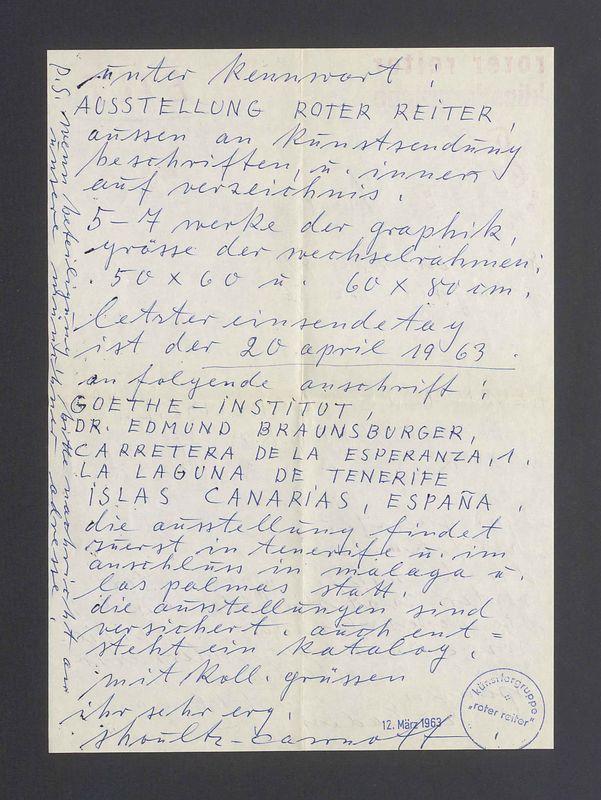 unter kennwort:
AUSSTELLUNG ROTER REITER,
aussen an kunstsendung
beschriften, u. innen
auf verzeichnis.
5-7 werke der graphik,
grösse der wechselrahmen:
50 x 60 u. 60 x 80 cm.
letzter einsendetag
ist der 20 april 1963.
an folgende anschrift:
GOETHE-INSTITUT,
DR. EDMUND BRAUNSBURGER,
CARRETERA DE LA ESPERANZA, 1.
LA LAGUNA DE TENERIFE
ISLAS CANARIAS, ESPAÑA.
die ausstellung findet
zuerst in tenerife u. im
anschluss in málaga u.
las palmas statt.
die ausstellungen sind
versichert. auch ent=
steht ein katalog.
mit koll. grüssen
ihr sehr erg.
12. März 1963
künstlergruppe
"roter reiter"
p.s. wenn beteiligung, bitte nachricht an
unsere münchner adresse.
roter reiter